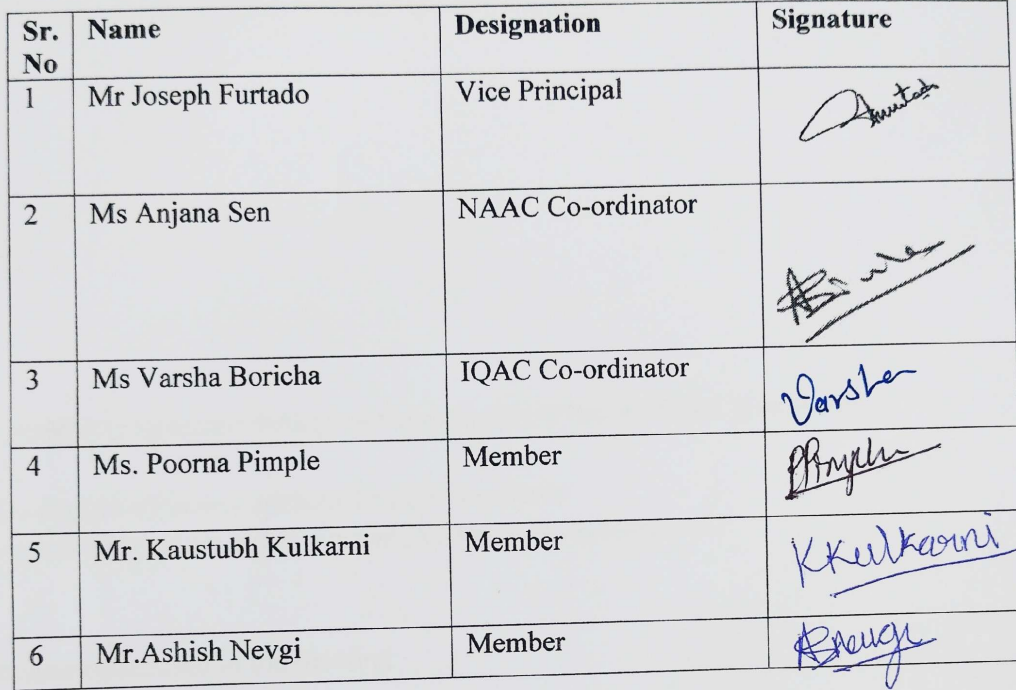 Sr. No Name Designation Signature
1 Mr Joseph Furtado Vice Principal
2 Ms Anjana Sen NAAC Co-ordinator
3 Ms Varsha Boricha IQAC Co-ordinator Varsha
4 Ms. Poorna Pimple Member
5 Mr. Kaustubh Kulkarni Member KKulkarni
6 Mr.Ashish Nevgi Member